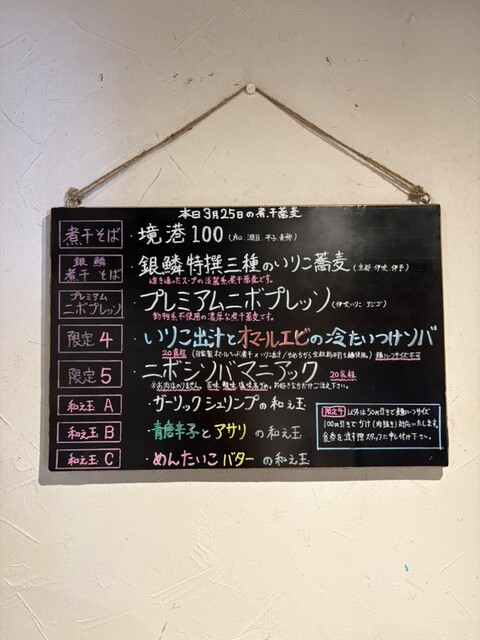 本日3月25日の煮干蕎麦
煮干そば ・境港100
銀鱗煮干そば ・銀鱗特撰三種のいりこ蕎麦
透き通ったスープの淡麗系煮干蕎麦です。
プレミアムニボプレッソ ・プレミアムニボプレッソ
動物系不使用の濃厚な煮干蕎麦です。
限定4 ・いりこ出汁とオマールエビの冷たいつけソバ
20食程
限定5 ・ニボシソバマニアック
20食程
和え玉A ・ガーリックシュリンプの和え玉
和え玉B ・青唐辛子とアサリの和え玉
和え玉C ・めんたいこバターの和え玉
限定4 以外は50円引きで
100円引きで
食券を渡す際スタッフに申し付け下さい。